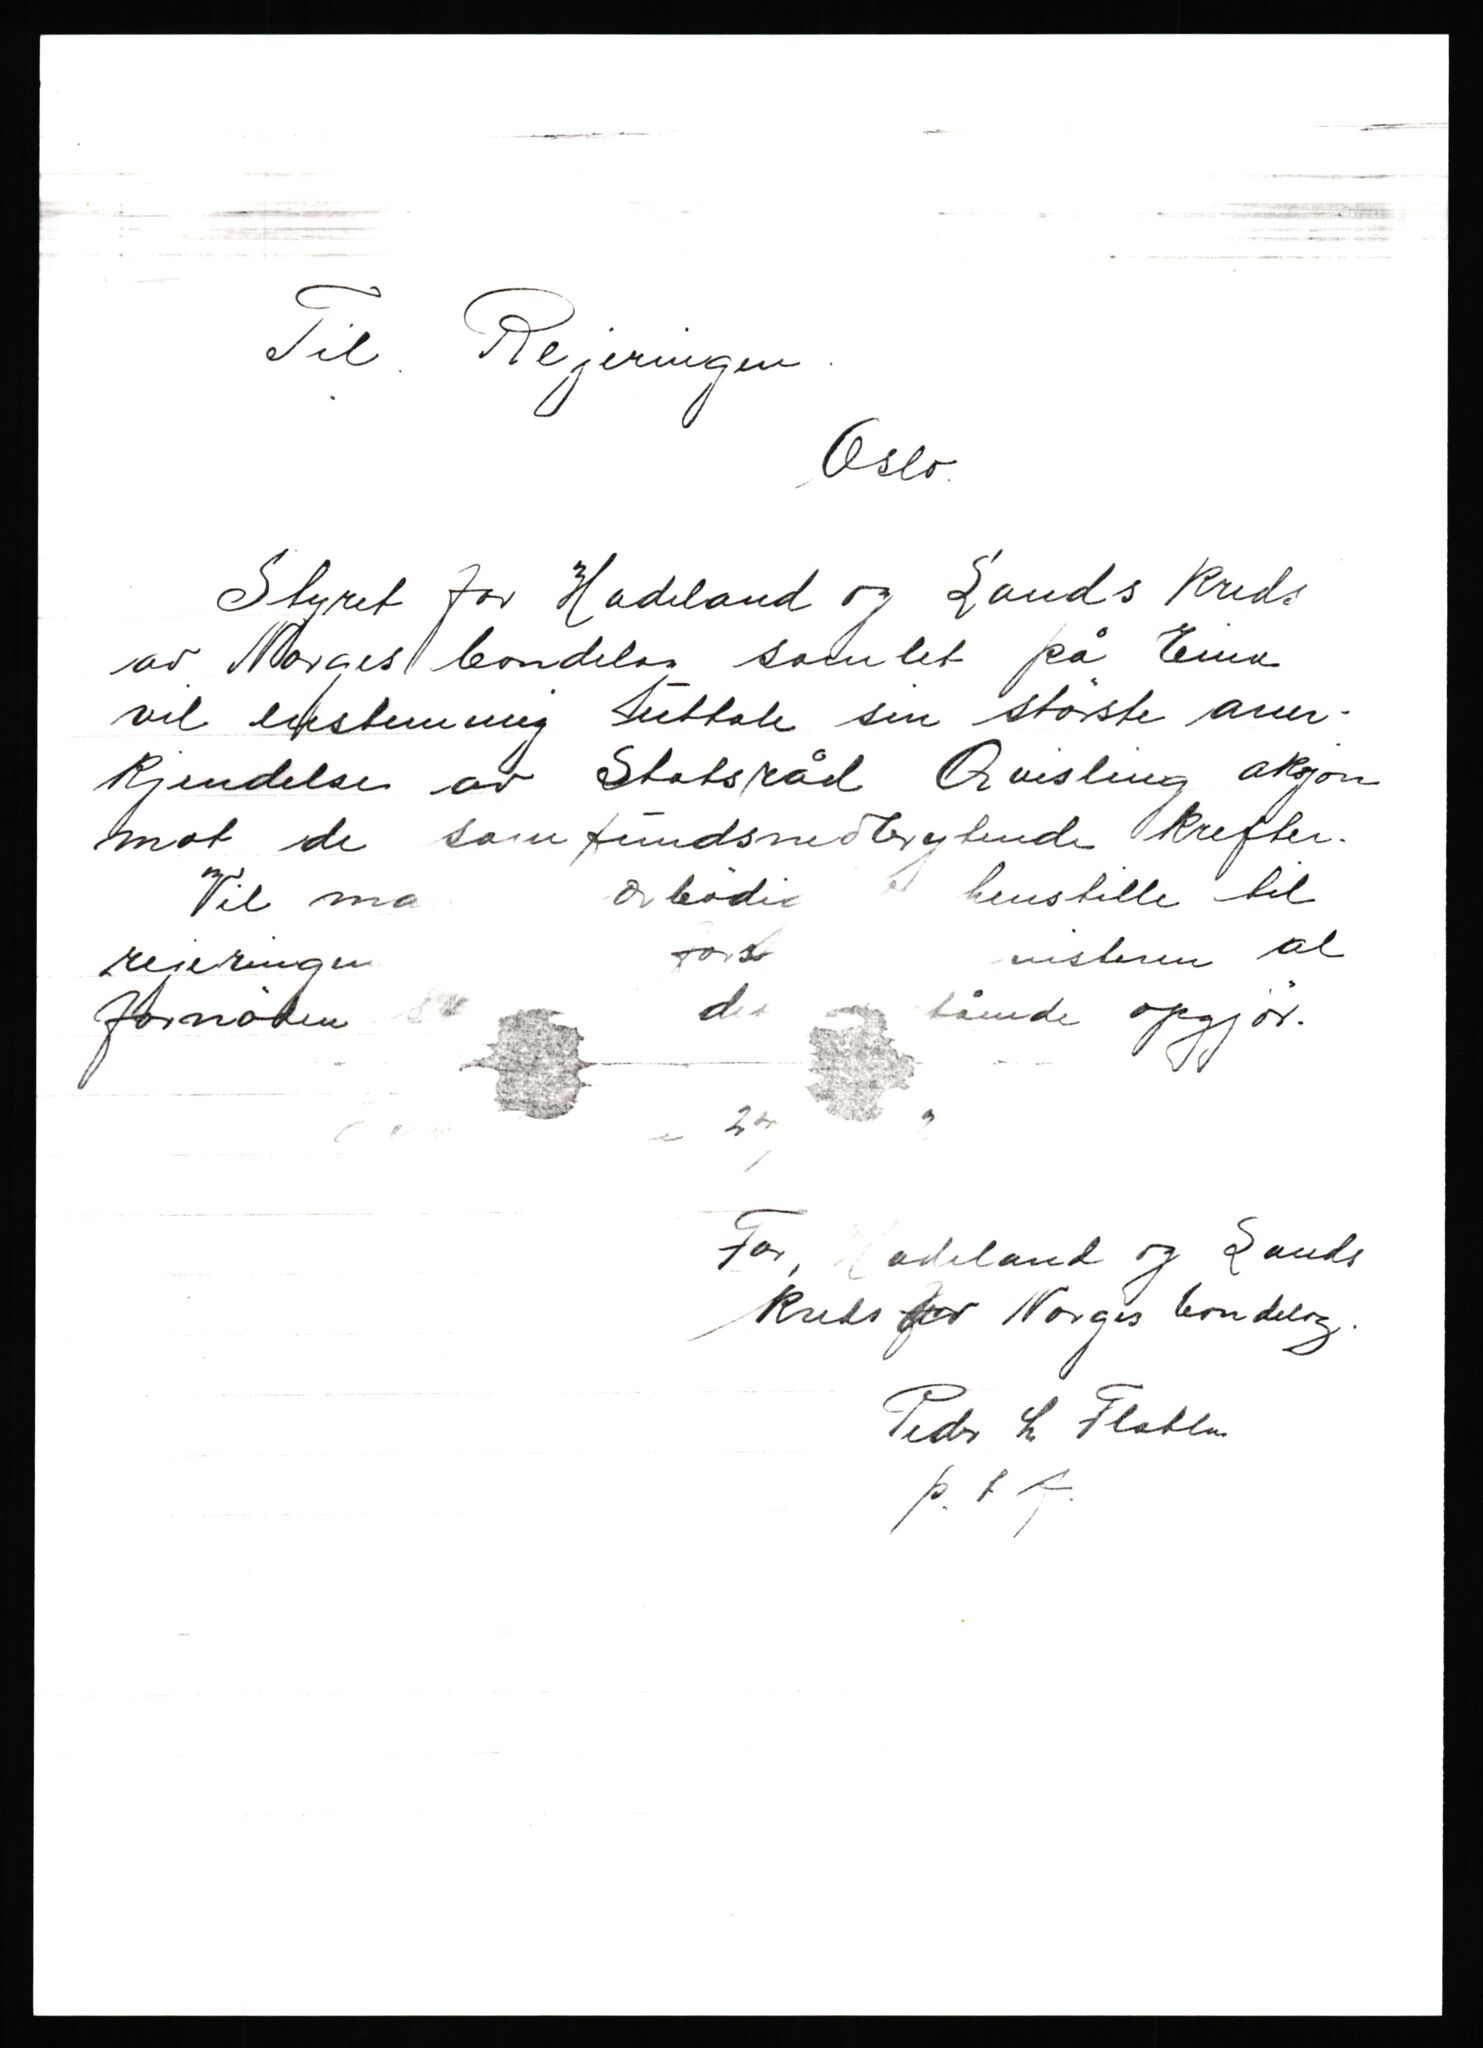 Til Rejeringen.
Oslo.
Styret for Hadeland og Lands Kreds
av Norges bondelag samlet på Eina
vil enstemmig uttale sin störste aner-
kjendelse av Statsråd Qvisling aksjon
mot de samfundsnedbrytende krefter.
Vil ma örbödi henstille til
rejeringen fors nisteren al
fornöden de tående opgjör.
For Hadeland og Lands
Kreds for Norges bondelag.
Peder L Flatla
p. t. f.